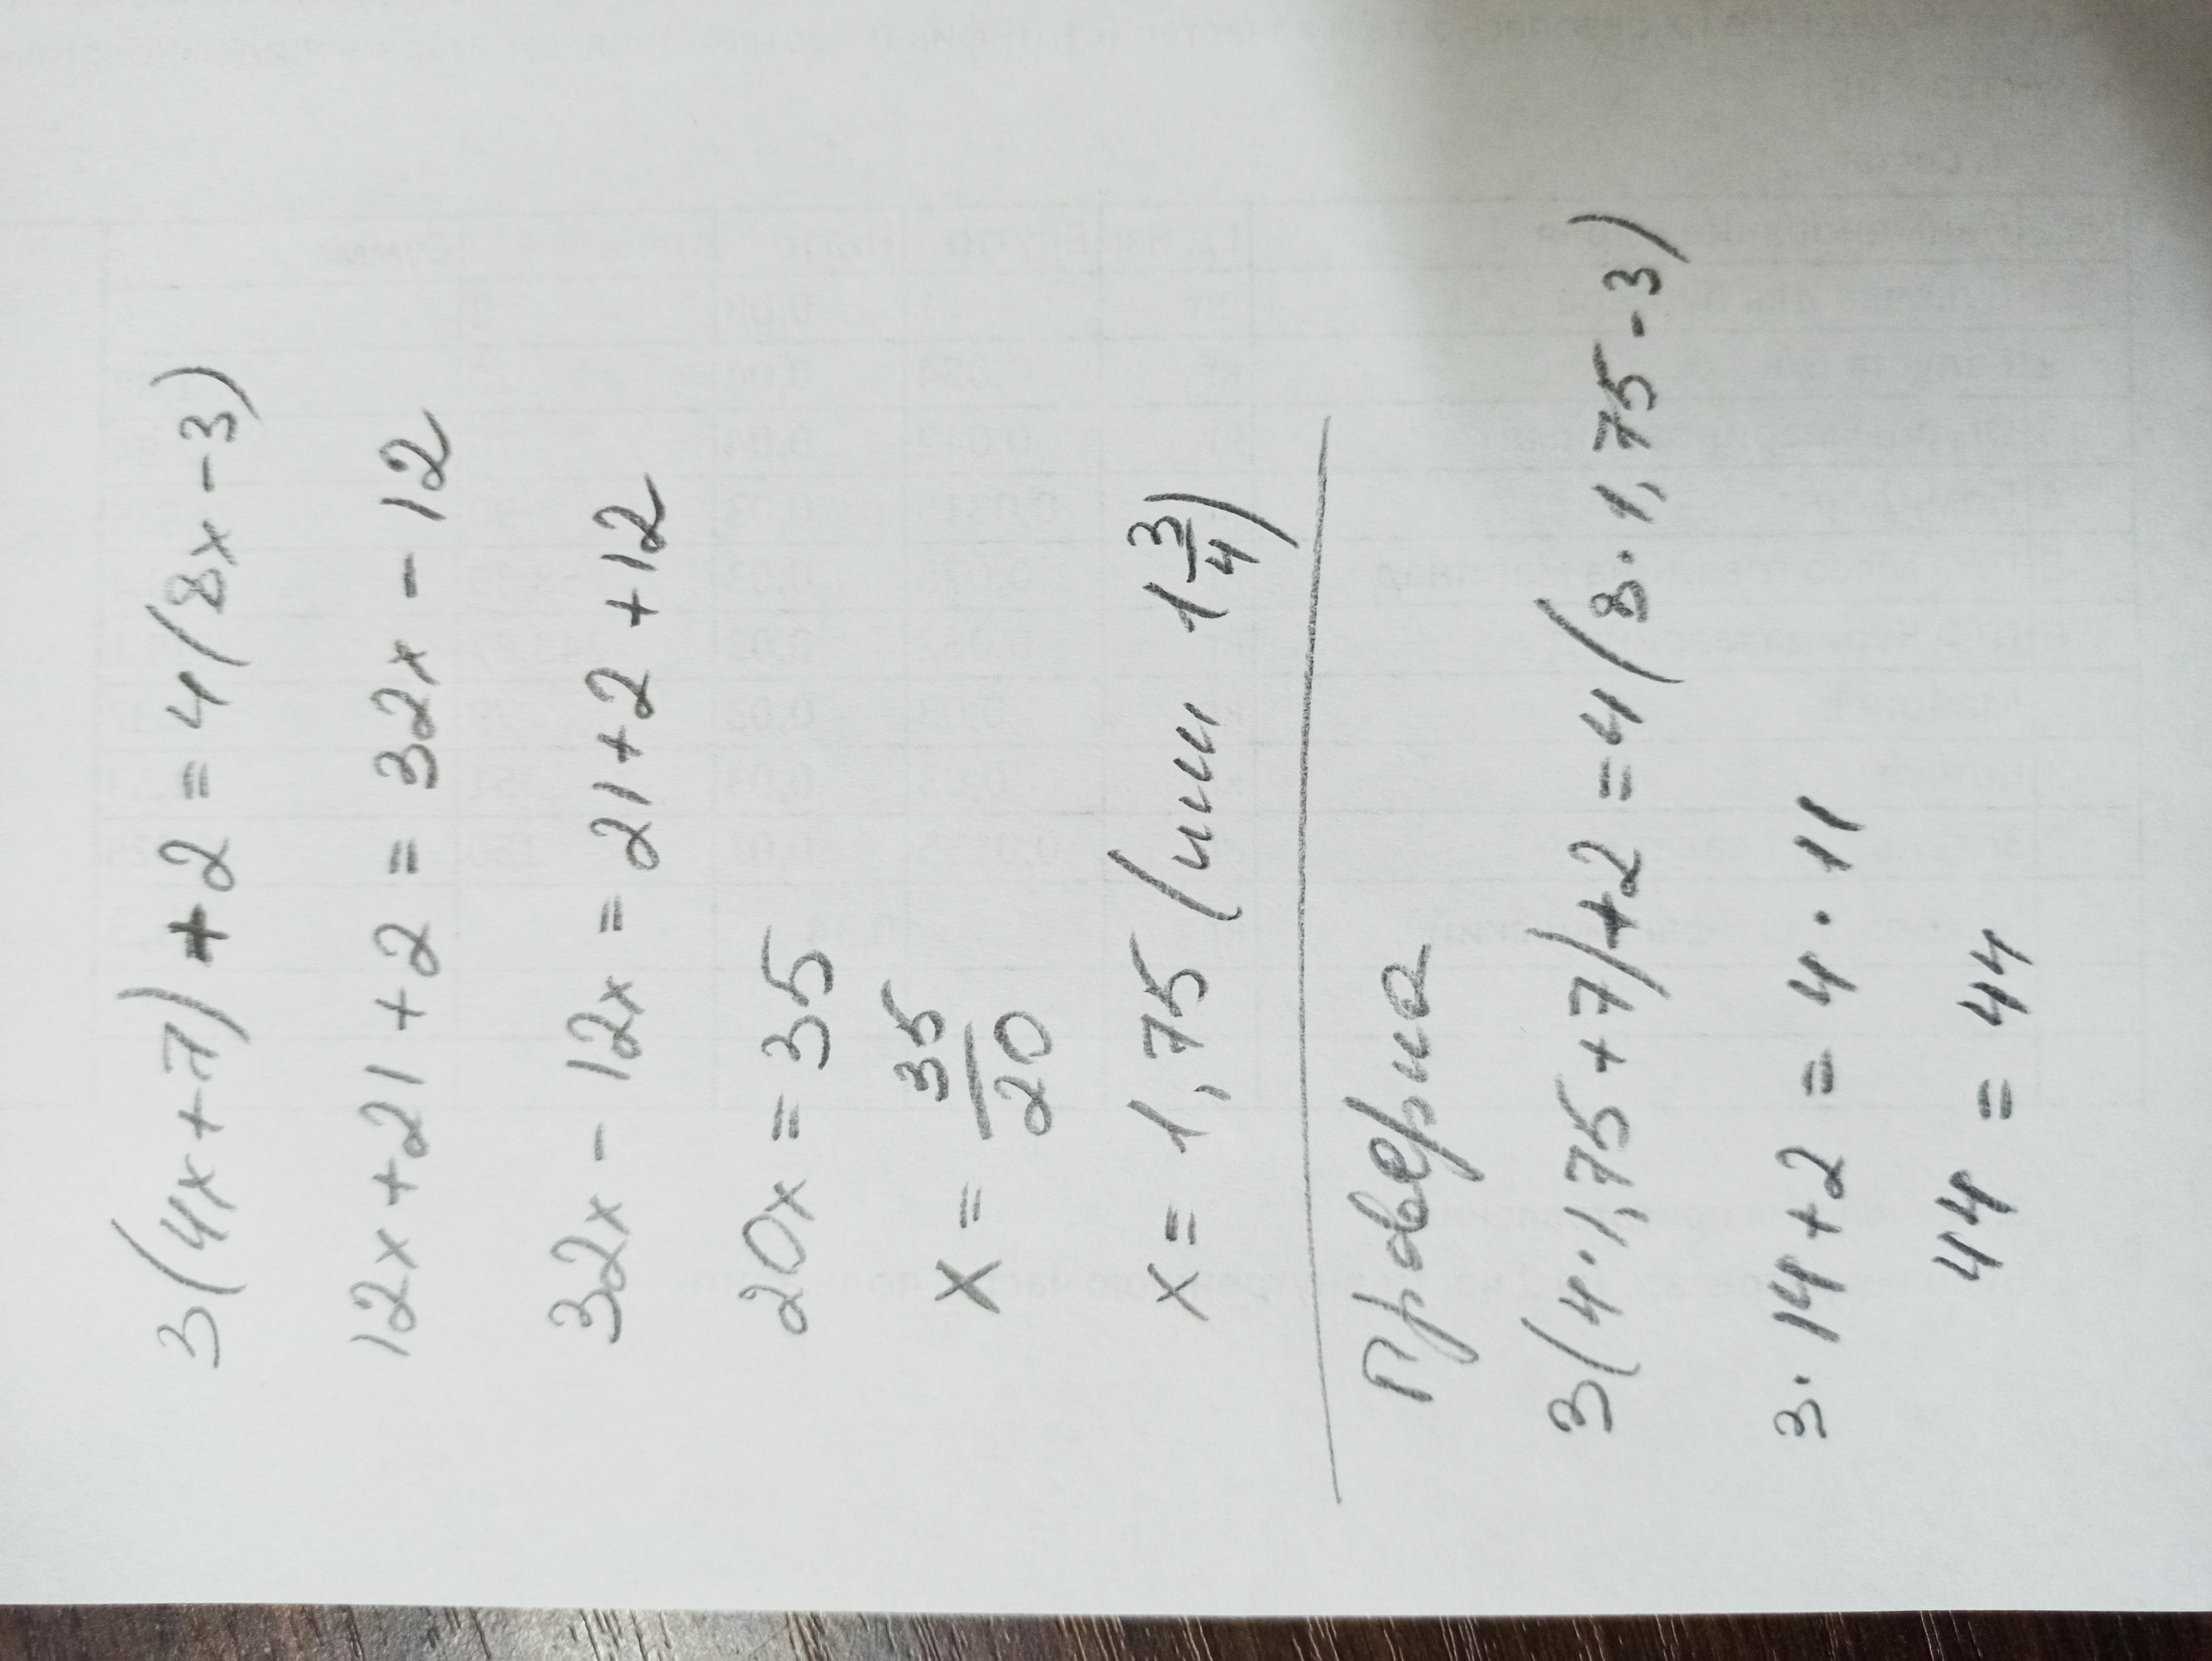 3(4x+7)+2=4(8x-3)
12x+21+2=32x-12
32x-12x=21+2+12
20x=35
x=35/20
x=1,75 (или 1 3/4)
Проверка
3(4·1,75+7)+2=4(8·1,75-3)
3·14+2=4·11
44=44